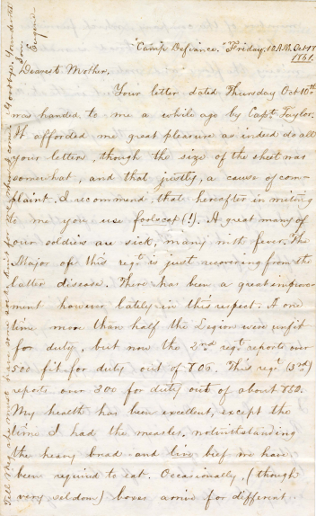 "Camp Defiance." Friday, 10 A.M. Oct 18th
1861.
Dearest Mother.
Your letter dated Thursday Oct 10th
was handed to me a while ago by Capt. Taylor.
It afforded me great pleasure as indeed do all
your letters, though the size of the sheet was
somewhat, and that justly, a cause of com-
plaint. I recommend, that hereafter in writing
to me you use foolscap (!). A great many of
our soldiers are sick, many with fever. The
Major of this regt is just recovering from the
latter disease. There has been a great improve-
ment however lately in this respect. At one
time more than half the Legion were unfit
for duty, but now the 2nd regt reports over
500 fit for duty out of 700. This regt (3rd)
reports over 300 for duty out of about 750.
My health has been excellent, except the
time I had the measles, notwithstanding
the heavy bread and beef we have
been required to eat. Occasionally, (though
very seldom) boxes arrive for different
Tell Meg she must have some nice for me when I come. Goodbye.
Your
Eugene.